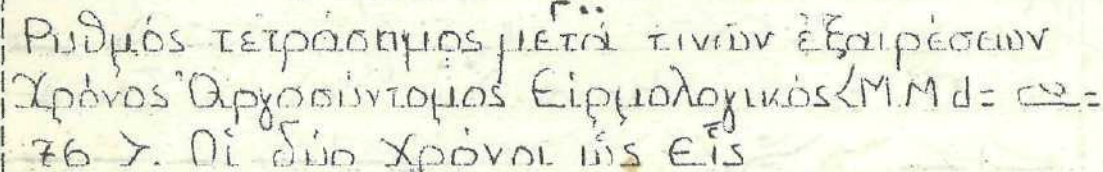 Ρυθμός τετράσημος μετά τινών ἐξαιρέσεων
Χρόνος Ἀργοσύντομος Εἱρμολογικός <M.M d=
76 >. Οἱ δύο Χρόνοι ὡς Εἷς